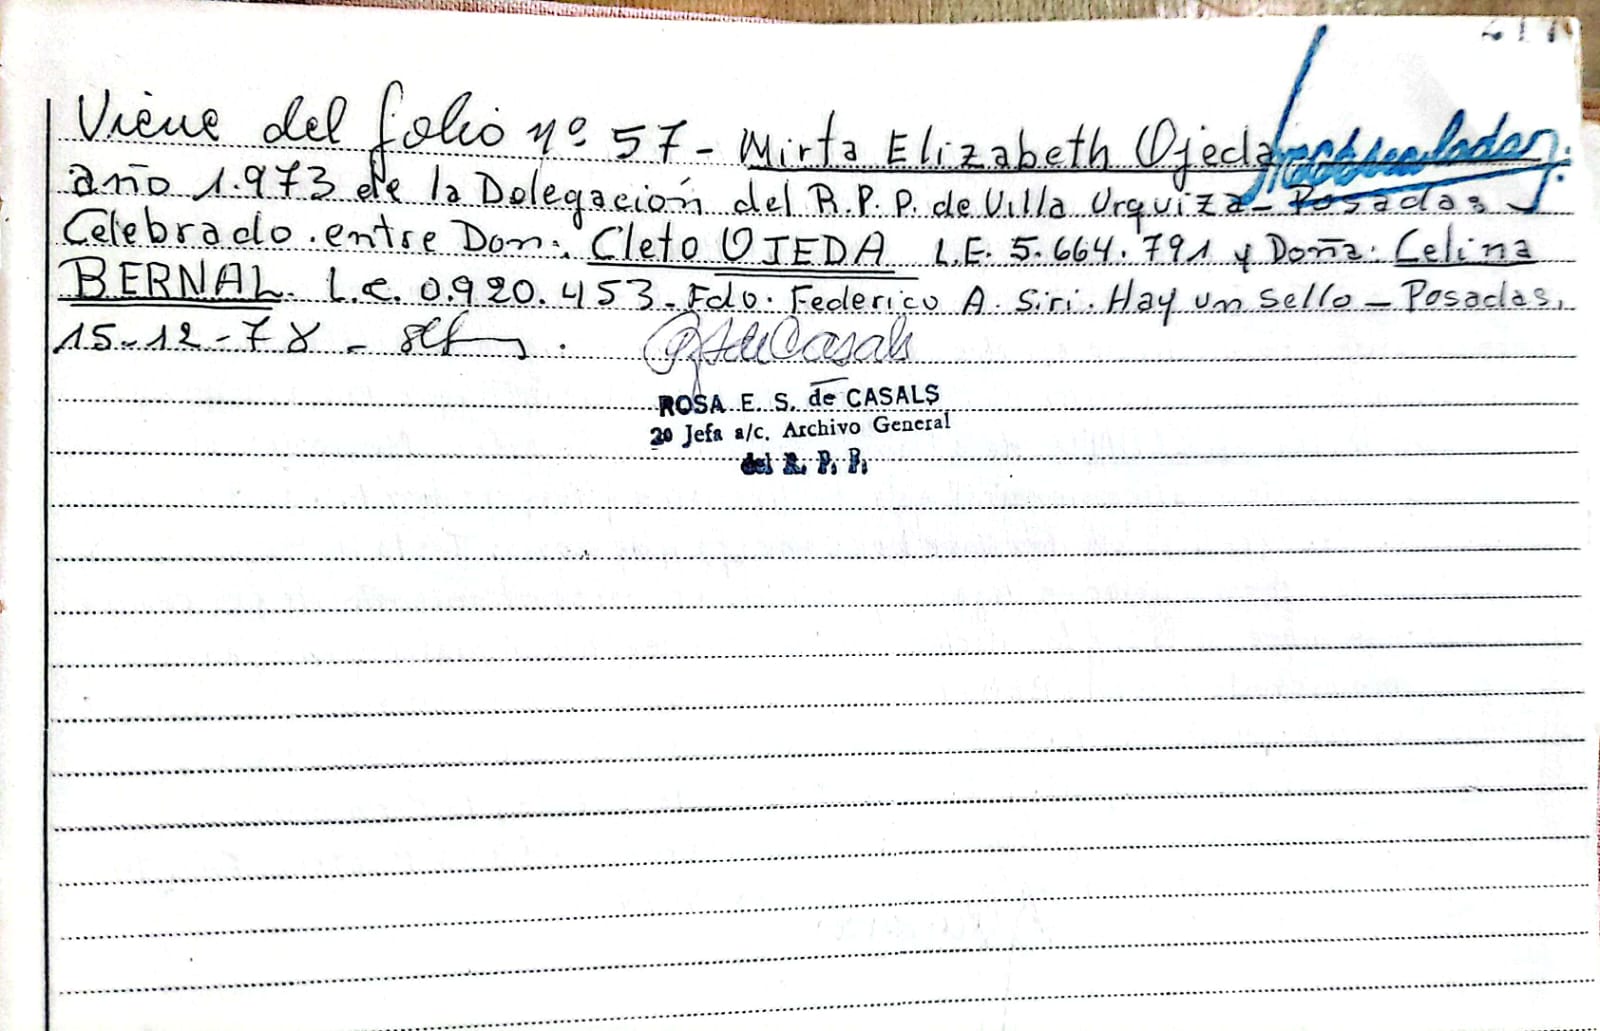 Viene del folio nº 57 - Mirta Elizabeth Ojeda
año 1.973 de la Delegación del R.P.P. de Villa Urquiza - Posadas
Celebrado entre Don: Cleto OJEDA L.E. 5.664.791 y Doña: Celina
BERNAL. L.C. 0.920.453. Fdo. Federico A. Siri. Hay un sello - Posadas,
15-12-78 -
ROSA E. S. de CASALS
2º Jefa a/c. Archivo General
del R. P. P.